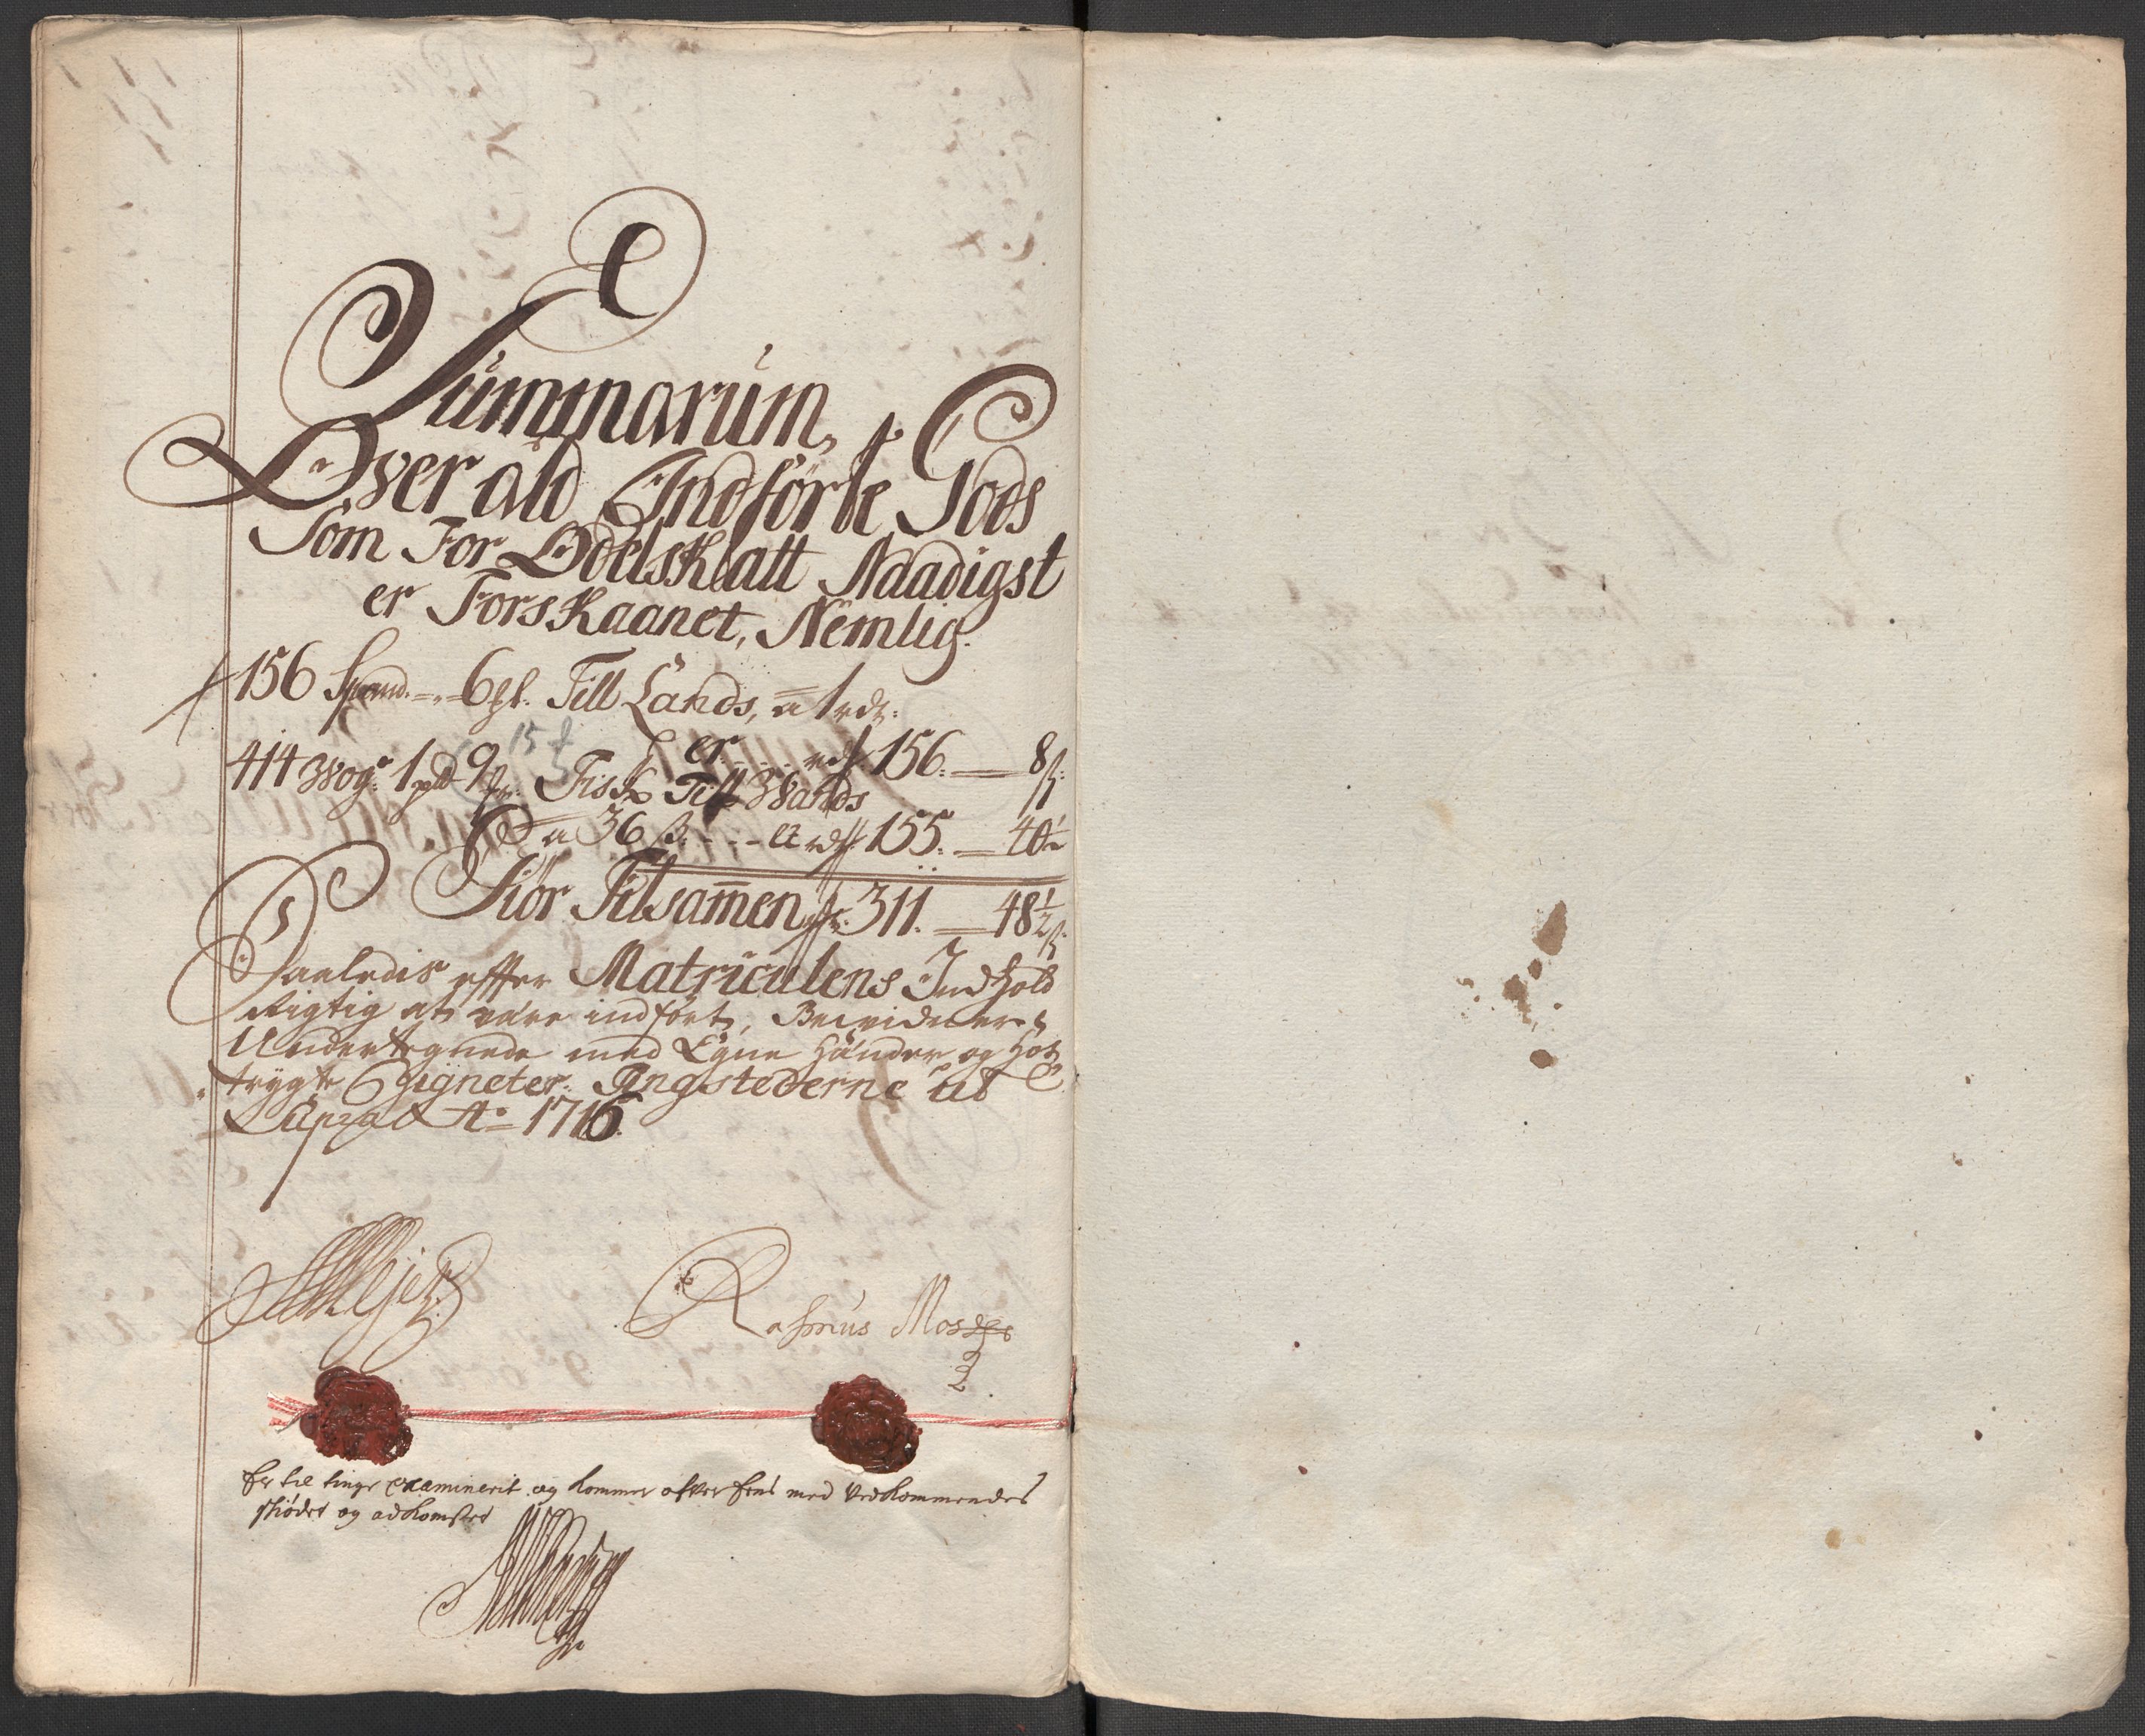 Summarum,
Over ald Indførte Gods
Som For Odelskatt Naadigst
er Forskaanet, Nemlig.
156 Spand. 6 gl. Till Lands, a 1 rdr.
er rdr 156. — 8 ß:
414 Wog: 1 pd 9 Fisk Till Wands
15
a 36 ß. - - - er rdr 155. — 40½
Giør Tilsamen rdr. 311. — 48½ ß.
Saaledis effter Matriculens Indhold
Rigtig at være indført, Bevidner
Undertegnede med Egne Hænder og Hos
trygte Signeter. Tingstederne ut
Supra Ao 1716.
Rasmus
Er til tinge examinerit og kommer ofver Eens med Vedkommendes
skiøder og adkomster